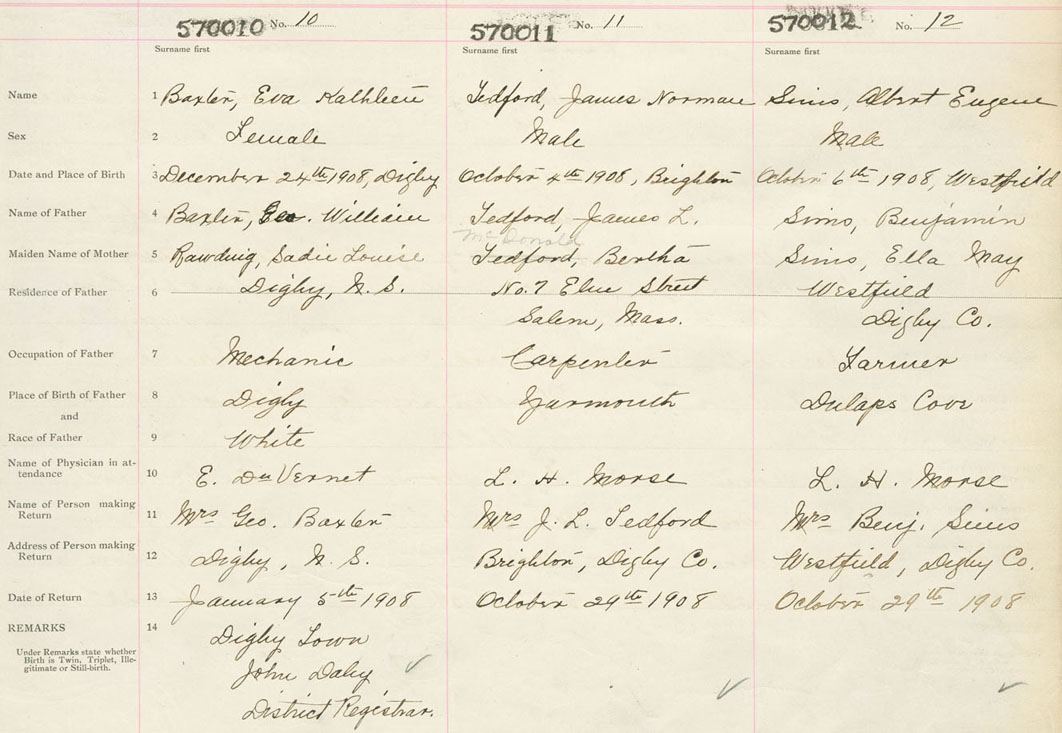 570010 No. 10 570011 No. 11 570012 No. 12
Surname first Surname first Surname first
Name 1 Baxter, Eva Kathleen Tedford, James Norman Sims, Albert Eugene
Sex 2 Female Male Male
Date and Place of Birth 3 December 24th 1908, Digby October 4th 1908, Brighton October 6th 1908, Westfield
Name of Father 4 Baxter, Geo. William Tedford, James L. Sims, Benjamin
McDonald
Maiden Name of Mother 5 Rawding, Sadie Louise Tedford, Bertha Sims, Ella May
Residence of Father 6 Digby, N.S. No. 7 Elm Street Westfield
Salem, Mass. Digby Co.
Occupation of Father 7 Mechanic Carpenter Farmer
Place of Birth of Father 8 Digby Yarmouth Dulaps Cove
and
Race of Father 9 White
Name of Physician in at-
tendance 10 E. DuVernet L. H. Morse L. H. Morse
Name of Person making
Return 11 Mrs Geo. Baxter Mrs J. L. Tedford Mrs Benj. Sims
Address of Person making
Return 12 Digby, N.S. Brighton, Digby Co. Westfield, Digby Co.
Date of Return 13 January 5th 1908 October 29th 1908 October 29th 1908
REMARKS 14 Digby Town
Under Remarks state whether
Birth is Twin, Triplet, Ille-
gitimate or Still-birth.
John Daley
District Registrar.